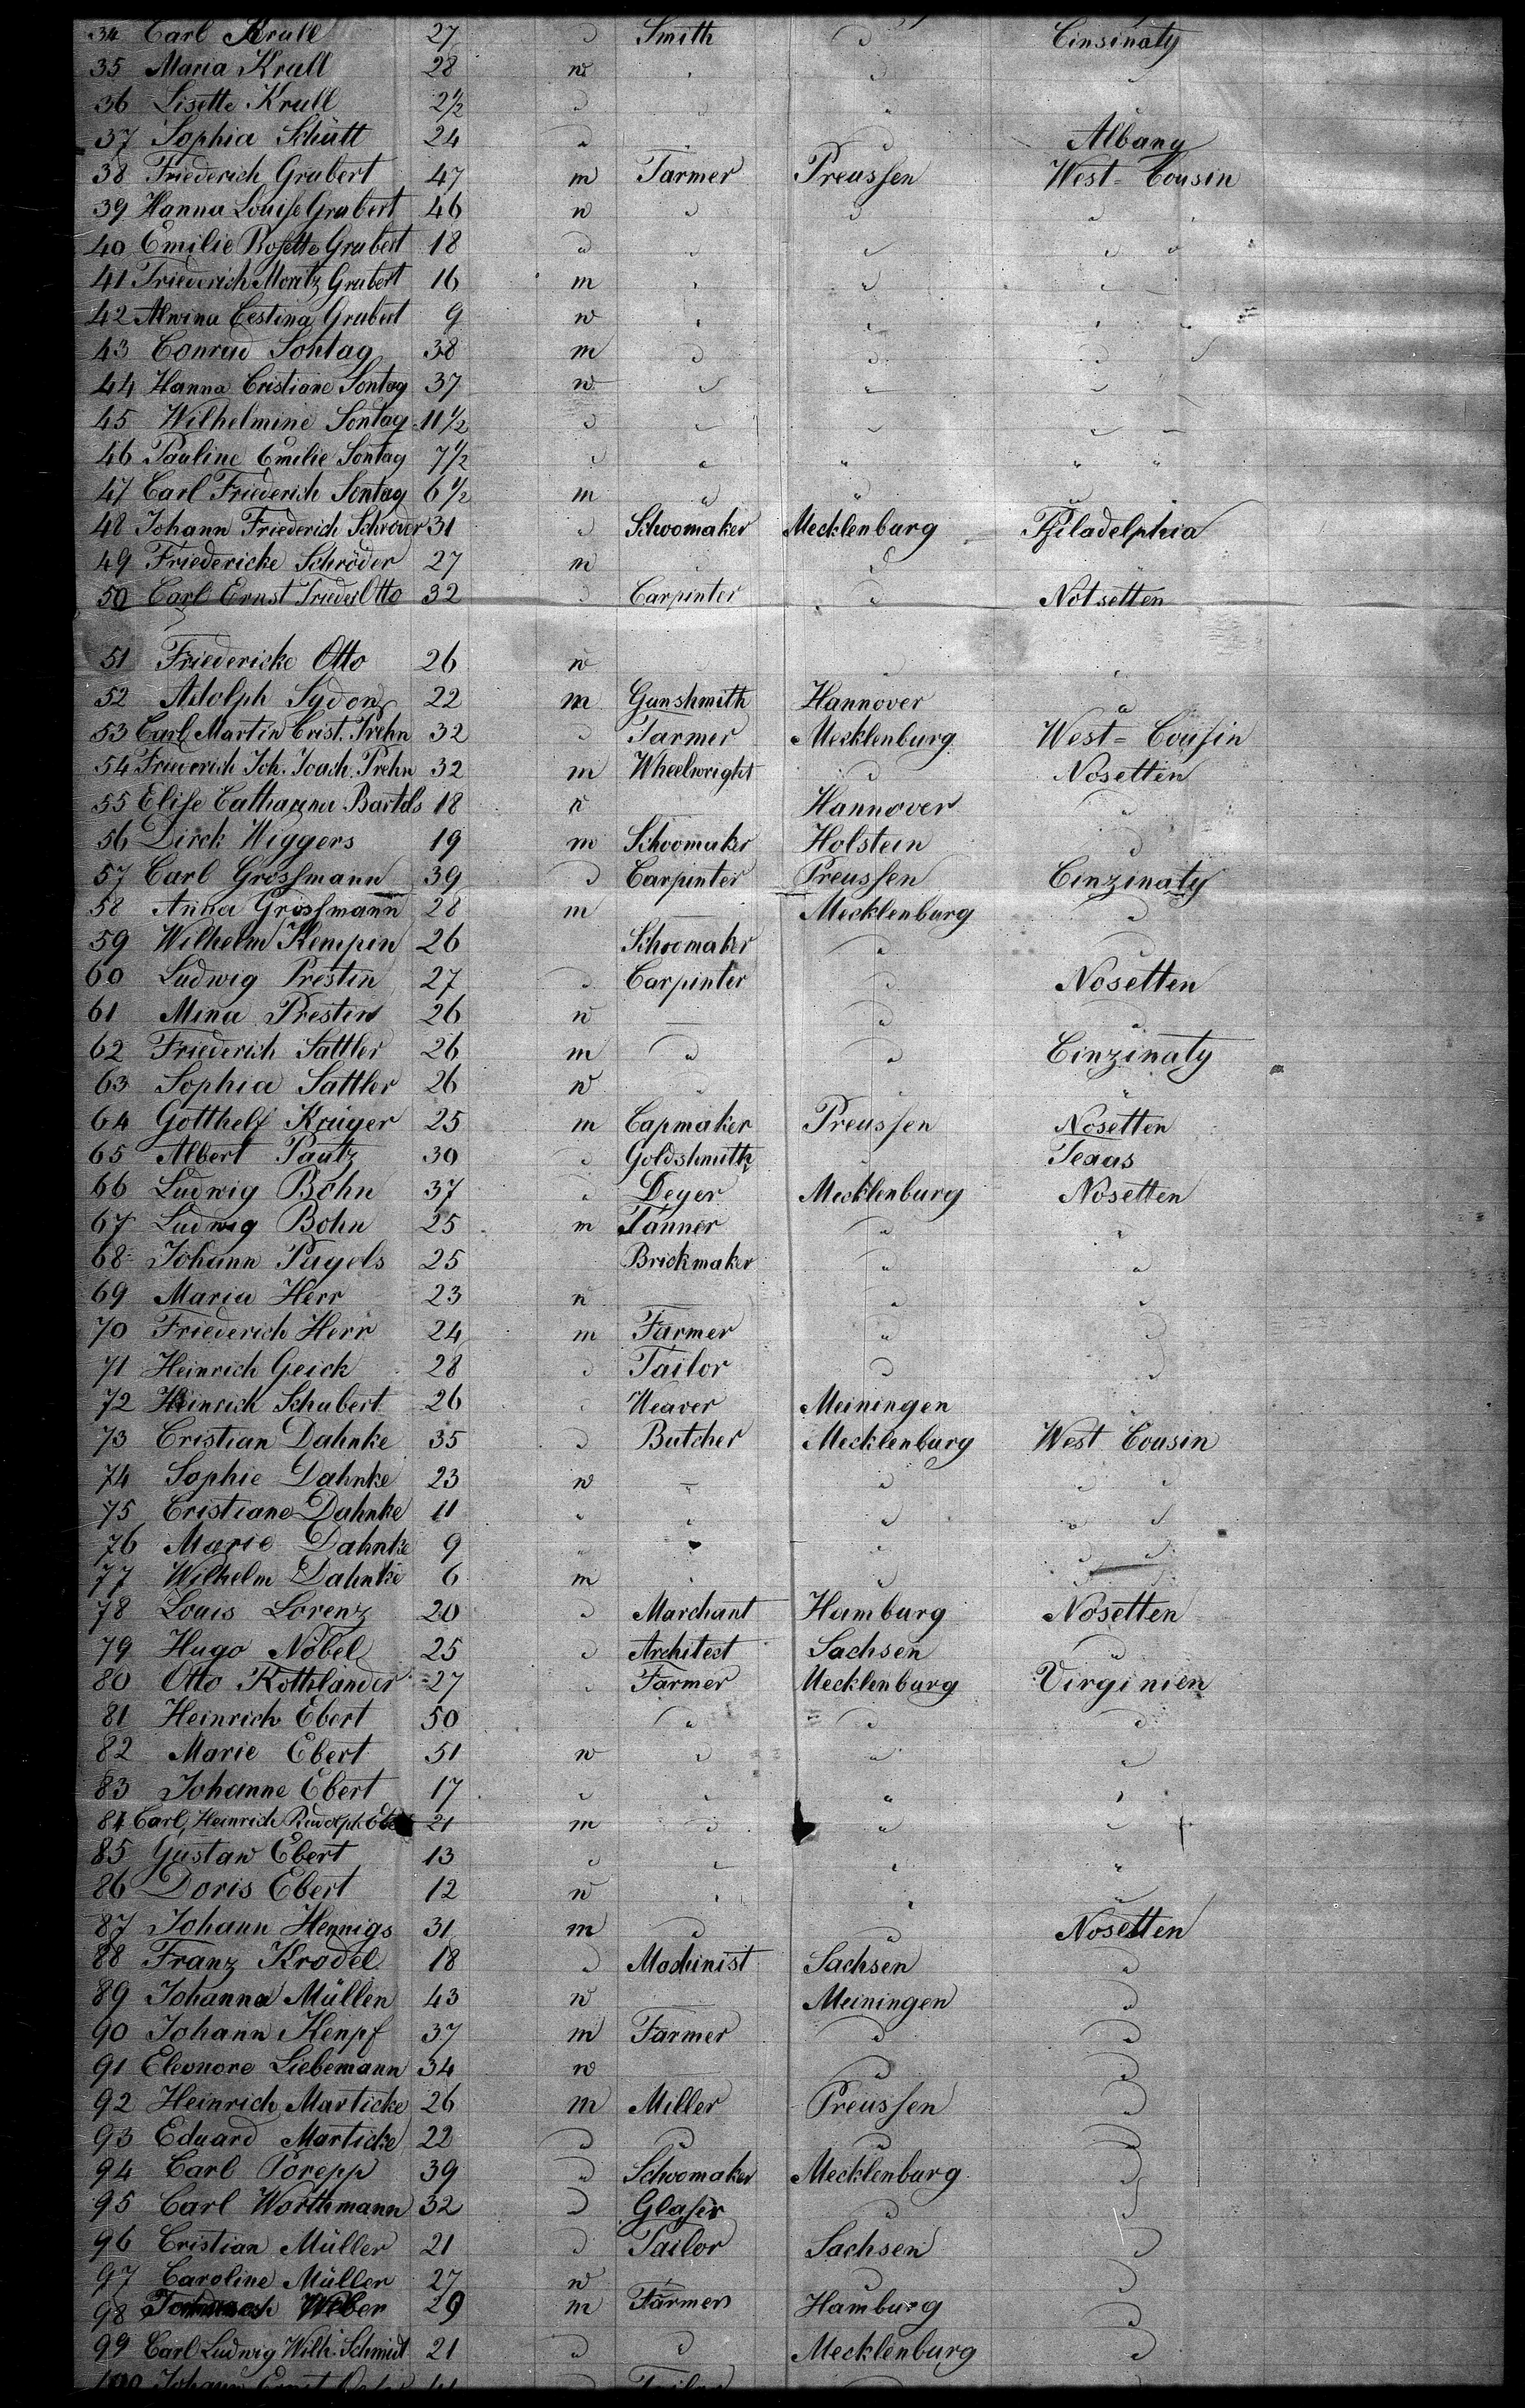 34 Carl Krull 27 " Smith " Cinsinaty
35 Maria Krull 28 w " "
36 Lisette Krull 2 1/2 " " "
37 Sophia Schütt 24 " " Albany
38 Friederich Grubert 47 m Farmer Preussen West-Cousin
39 Hanna Louise Grubert 46 w " " "
40 Emilie Rosette Grubert 18 " " " " "
41 Friederich Moritz Grubert 16 m " " "
42 Alwina Cestina Grubert 9 w " " " "
43 Conrad Sontag 38 m " " " "
44 Hanna Cristiane Sontag 37 w " " "
45 Wilhelmine Sontag 11 1/2 " " " " "
46 Pauline Emilie Sontag 7 1/2 " " " " "
47 Carl Friederich Sontag 6 1/2 m " " "
48 Johann Friederich Schröder 31 " Schoomaker Mecklenburg Philadelphia
49 Friedericke Schröder 27 m " "
50 Carl Ernst Frieder Otto 32 " Carpinter " Notsetten
51 Friedericke Otto 26 w "
52 Adolph Sydow 22 m Gunshmith Hannover "
53 Carl Martin Crist. Prehn 32 " Farmer Mecklenburg West-Cousin
54 Friederich Joh. Joach. Prehn 32 m Wheelwright " Nosetten
55 Elise Catharina Bartels 18 w Hannover "
56 Dirck Wiggers 19 m Schoomaker Holstein "
57 Carl Grossmann 39 " Carpinter Preussen Cinzinaty
58 Anna Grossmann 28 m — Mecklenburg "
59 Wilhelm Kempin 26 Schoomaker " "
60 Ludwig Prestin 27 " Carpinter " Nosetten
61 Mina Prestin 26 w — " "
62 Friederich Sattler 26 m " " Cinzinaty
63 Sophia Sattler 26 w "
64 Gotthelf Krüger 25 m Capmaker Preussen Nosetten
65 Albert Pautz 30 " Goldshmith " Texas
66 Ludwig Bohn 37 " Deyer Mecklenburg Nosetten
67 Ludwig Bohn 25 m Tanner " "
68 Johann Pagels 25 Brickmaker " "
69 Maria Herr 23 w " "
70 Friederich Herr 24 m Farmer " "
71 Heinrich Geick 28 " Tailor " "
72 Heinrich Schubert 26 " Weaver Meiningen "
73 Cristian Dahnke 35 " Butcher Mecklenburg West Cousin
74 Sophie Dahnke 23 w — " " "
75 Cristiane Dahnke 11 " " " " "
76 Marie Dahnke 9 " " " " "
77 Wilhelm Dahnke 6 m " " "
78 Louis Lorenz 20 " Marchant Hamburg Nosetten
79 Hugo Nöbel 25 " Architect Sachsen "
80 Otto Rothländer 27 " Farmer Mecklenburg Virginien
81 Heinrich Ebert 50 " " "
82 Marie Ebert 51 w " " "
83 Johanne Ebert 17 " " "
84 Carl Heinrich Rudolph 21 m " " "
85 Gustaw Ebert 13 " " " "
86 Doris Ebert 12 w " " "
87 Johann Hennigs 31 m " " Nosetten
88 Franz Krodel 18 " Machinist Sachsen "
89 Johanna Müllen 43 w Meiningen "
90 Johann Kenpf 37 m Farmer " "
91 Eleonore Liebemann 34 w — " "
92 Heinrich Marticke 26 m Miller Preussen "
93 Eduard Marticke 22 " " " "
94 Carl Porepp 39 " Schoomaker Mecklenburg "
95 Carl Worthmann 32 " Glaser " "
96 Cristian Müller 21 " Tailor Sachsen "
97 Caroline Müller 27 w — " "
98 Weber 29 m Farmers Hamburg "
99 Carl Ludwig Wilh. Schmidt 21 " " Mecklenburg "
100 Johann Ernst